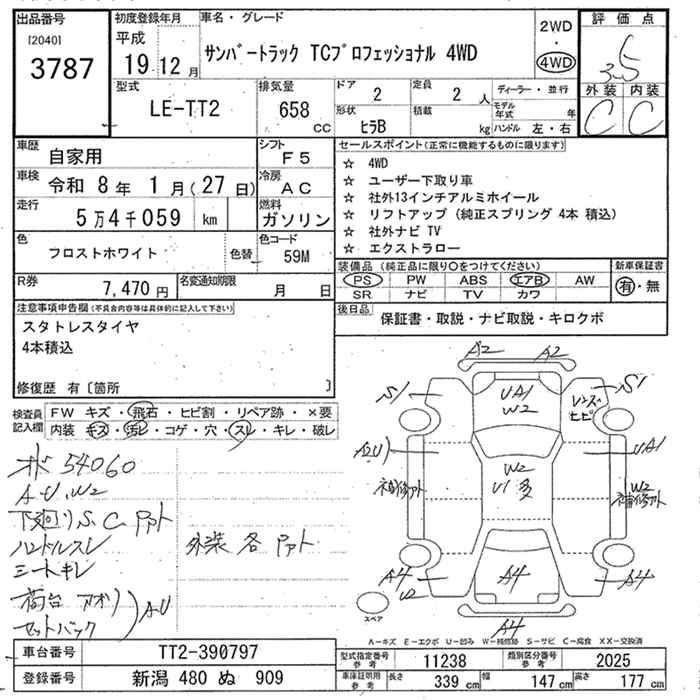 出品番号
[2040]
3787
初度登録年月
平成
19 12 月
車名・グレード
サンバートラック TCプロフェッショナル 4WD
2WD
・
4WD
評価点
3.5
外装 内装
C C
型式
LE-TT2
排気量
658
CC
ドア
2
定員
2 人
形状
ヒラB
積載
kg
ディーラー・並行
モデル
年式 年
ハンドル 左・右
車歴
自家用
シフト
F5
車検
令和 8 年 1 月 ( 27 日)
冷房
AC
走行
5万4千059 km
燃料
ガソリン
色
フロストホワイト
色替
色コード
59M
R券
7,470 円
名変通知期限
月 日
セールスポイント(正常に機能するものに限ります)
☆ 4WD
☆ ユーザー下取り車
☆ 社外13インチアルミホイール
☆ リフトアップ (純正スプリング 4本 積込)
☆ 社外ナビ TV
☆ エクストラロー
装備品 (純正品に限り○をつけてください)
PS PW ABS エアB AW
SR ナビ TV カワ
新車保証書
有・無
後日品
保証書・取説・ナビ取説・キロクボ
注意事項申告欄(不具合内容等は具体的に記入して下さい)
スタトレスタイヤ
4本積込
修復歴 有〔箇所 〕
検査員
記入欄
FW キズ・飛石・ヒビ割・リペア跡・×要
内装 キズ・汚レ・コゲ・穴・スレ・キレ・破レ
54060
A・U、W2
下廻りS、C アト
ハンドルスレ
シートキレ
荷台 アオリ
セットバック
AU
外装 各 アト
A2 A2
S1 UA1 W2 S1
ヒビ
A2U W2 U1 多 UA1
補修アト W2 補修アト
A4 U2 A4 A4
A4
スペア
A-キズ E-エクボ U-凹み W-補修跡 S-サビ C-腐食 XX-交換済
車台番号
TT2-390797
登録番号
新潟 480 ぬ 909
型式指定番号
参考
11238
類別区分番号
参考
2025
車庫証明用
参考
長さ 339 cm
幅 147 cm
高さ 177 cm